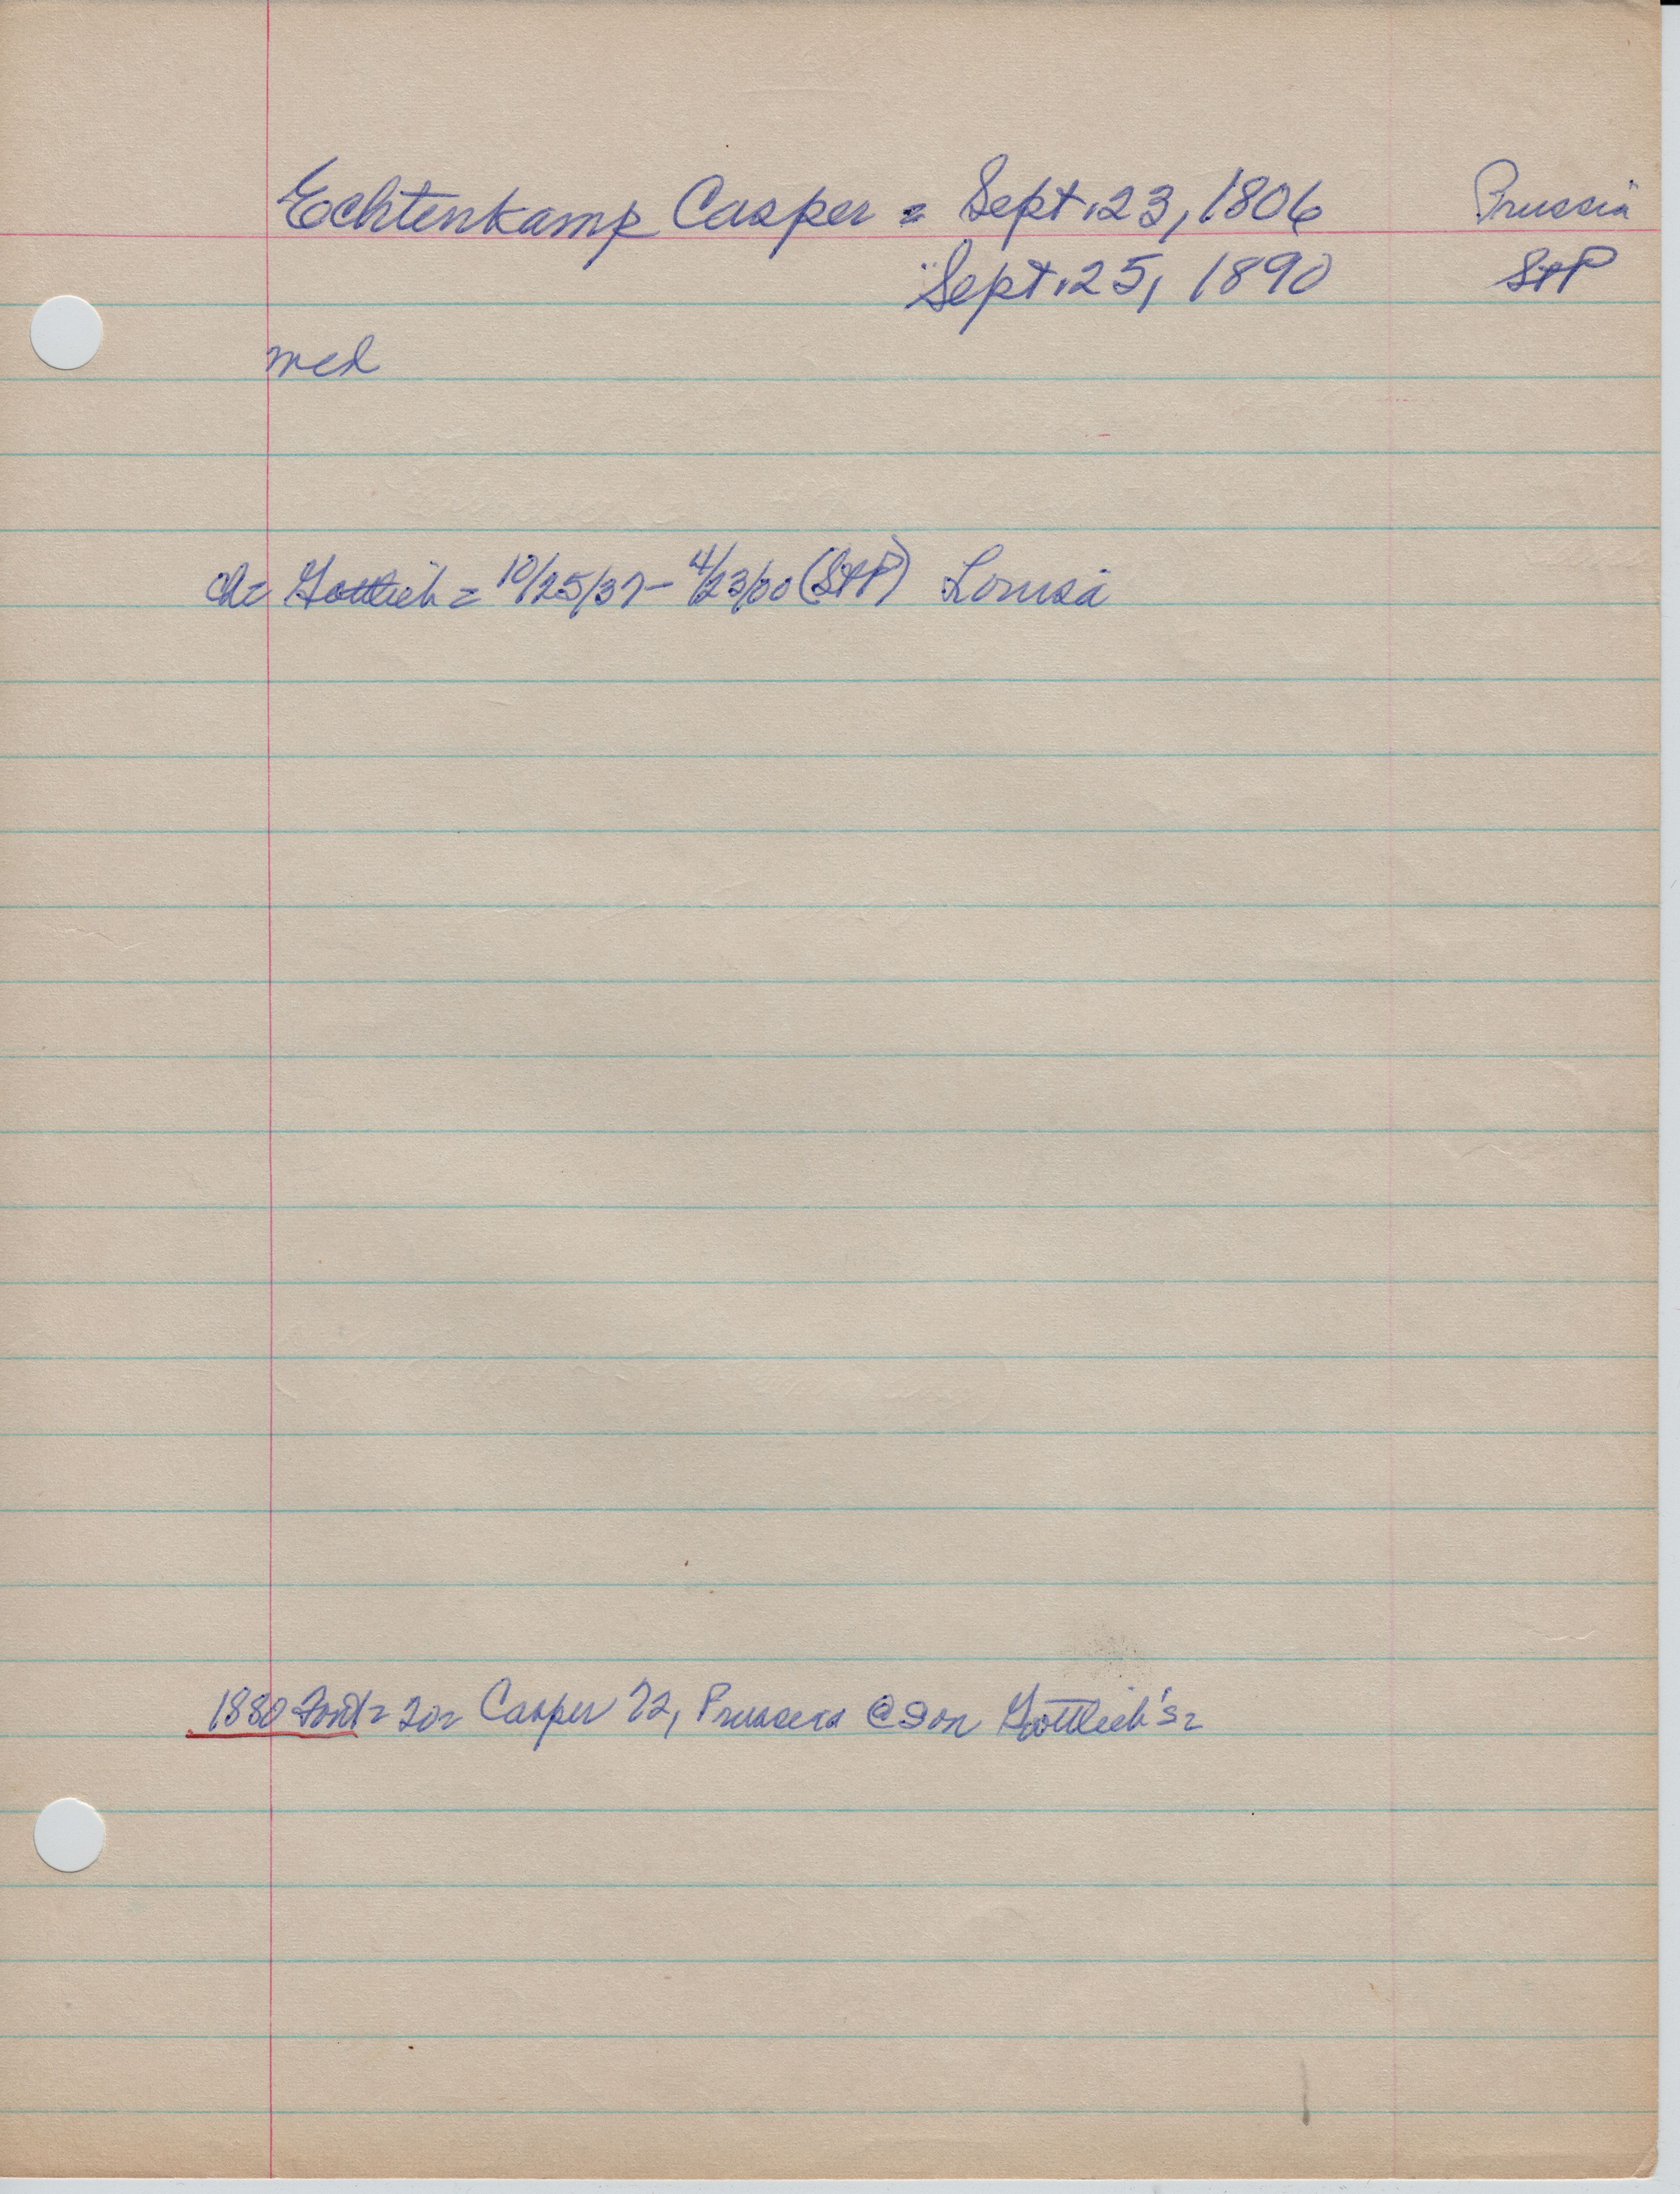 Echtenkamp Casper = Sept. 23, 1806 Prussia
Sept. 25, 1890 StP
med
ch= Gottlieb = 10/25/37 - 4/23/00 (StP) Louisa
1880 = 20= Casper 72, Prussia @ son Gottlieb's=